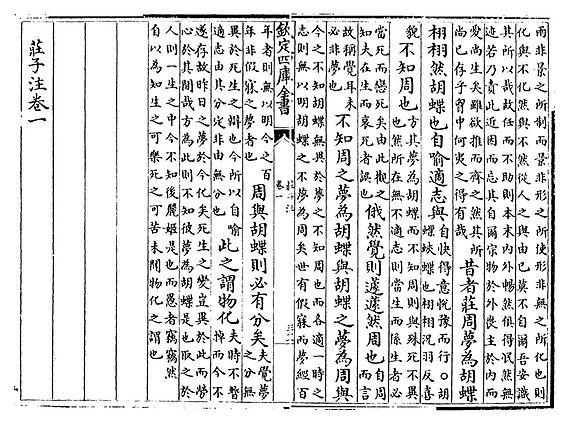 雨非景之所制而景非形之所使形非無之所化也則
化與不化然與不然從人之與由己莫不自爾吾安識
其所以哉故任而不助則本末内外暢然俱得泯然無
迹若乃責此近因而忘其自爾宗物於外喪主於内而
愛尚生矣雖欲推而齊之然其所
尚已存乎胷中何夷之得有哉
昔者莊周夢為胡蝶
栩栩然胡蝶也自喻適志與
自快得意恱豫而行○胡
蝶蛺蝶也栩栩況羽反喜
貌
不知周也
方其夢為胡蝶而不知周則與殊死不異
也然所在無不適志則當生而係生者必
當死而戀死矣由此觀之
知夫在生而哀死者誤也
俄然覺則蘧蘧然周也
自周
而言
故稱覺耳未
必非夢也
不知周之夢為胡蝶與胡蝶之夢為周與
今之不知胡蝶無異於夢之不知周也而各適一時之
志則無以明胡蝶之不夢為周矣世有假寐而夢經百
欽定四庫全書
莊子注
卷一
年者則無以明今之百
年非假寐之夢者也
周與胡蝶則必有分矣
夫覺夢
之分無
異於死生之辯也今所以自喻
適志由其分定非由無分也
此之謂物化
夫時不暫
停而今不
遂存故昨日之夢於今化矣死生之變豈異於此而勞
心於其間哉方為此則不知彼夢為胡蝶是也取之於
人則一生之中今不知後麗姬是也而愚者竊竊然
自以為知生之可樂死之可苦未聞物化之謂也
莊子注卷一